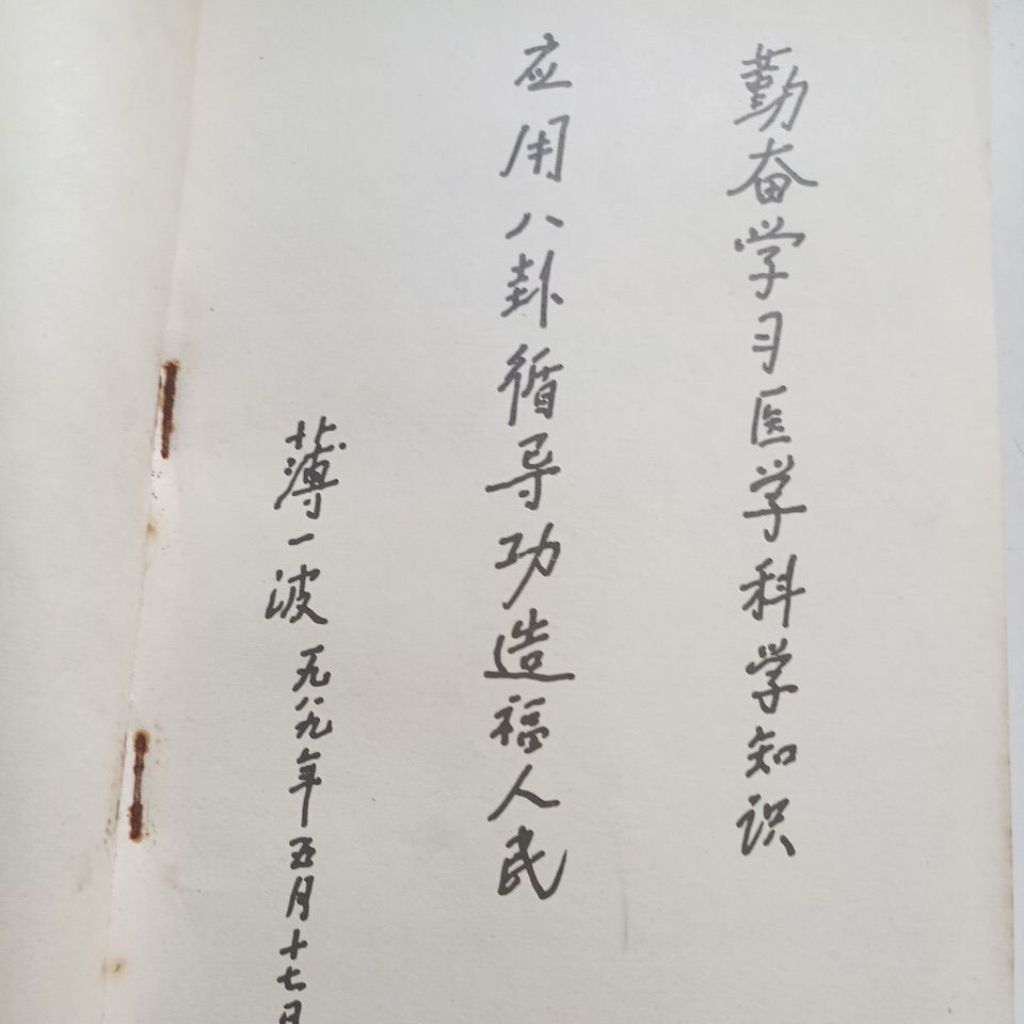 勤奋学习医学科学知识
应用八卦循导功造福人民
薄一波 一九八九年五月十七日